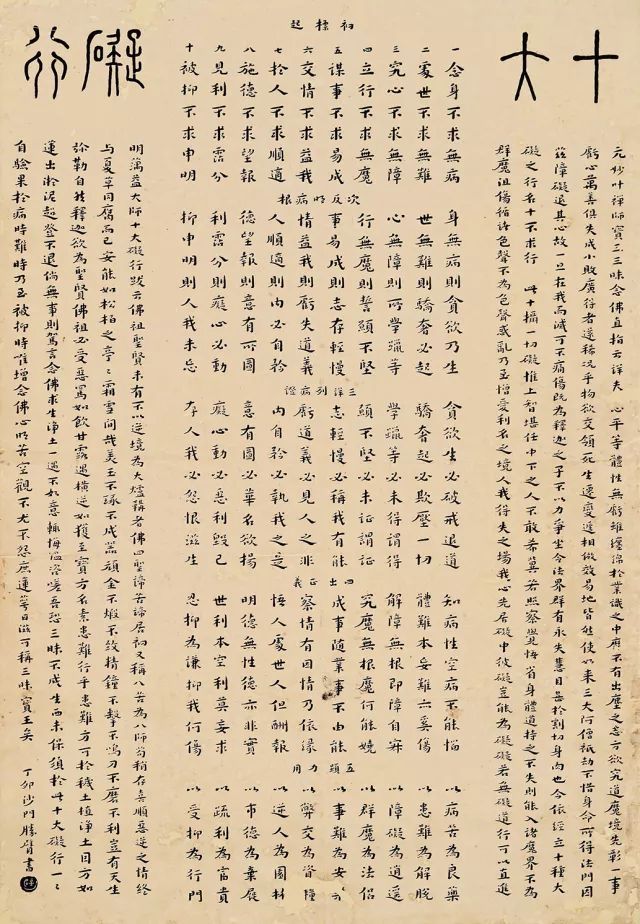 十大
礙行
元妙叶禪師寶王三昧念佛直指云詳夫 心平等體性無虧雖纏綿於業識之中靡不有出塵之志方欲究道魔境先彰一事
虧心萬善俱失成小敗廣得者還稀況乎物欲交傾死生遷變遞相倣效易地皆然使如來三大阿僧祇劫不惜身命所得法門因
茲障礙退其心故一旦在我而滅可不痛傷既為釋迦之子不以力爭坐令法界群有永失慧目甚於割切身肉也今依經立十種大
礙之行名十不求行 此十攝一切礙惟上智堪任中下之人不敢希冀若照察覺悟省身體道持之不失則能入諸魔界不為
群魔沮傷循諸色聲不為色聲惑亂乃至憎愛利名之境人我得失之場我心先居礙中彼礙豈能為礙礙若無礙道行可以直進
初標起
一念身不求無病
二處世不求無難
三究心不求無障
四立行不求無魔
五謀事不求易成
六交情不求益我
七於人不求順適
八施德不求望報
九見利不求霑分
十被抑不求申明
次反明病根
身無病則貪欲乃生
世無難則驕奢必起
心無障則所學躐等
行無魔則誓願不堅
事易成則志存輕慢
情益我則虧失道義
人順適則內必自矜
德望報則意有所圖
利霑分則癡心必動
抑申明則人我未忘
三詳列病證
貪欲生必破戒退道
驕奢起必欺壓一切
學躐等必未得謂得
願不堅必未証謂証
志輕慢必稱我有能
虧道義必見人之非
內自矜必執我之是
意有圖必華名欲揚
癡心動必惡利毀己
存人我必怨恨滋生
四出正義
知病性空病不能惱
體難本妄難亦奚傷
解障無根即障自寂
究魔無根魔何能嬈
成事隨業事不由能
察情有因情乃依緣
悟人處世人但酬報
明德無性德亦非實
世利本空利莫妄求
忍抑為謙抑我何傷
五顯力用
以病苦為良藥
以患難為解脫
以障礙為逍遙
以群魔為法侶
以事難為安樂
以弊交為資糧
以逆人為園林
以市德為棄屣
以疏利為富貴
以受抑為行門
明蕅益大師十大礙行跋云佛祖聖賢未有不以逆境為大爐鞴者佛四聖諦苦諦居初又稱八苦為八師苟稍存喜順惡逆之情終
与夏草同腐而已安能如松柏之亭亭霜雪間哉美玉不琢不成器頑金不煅不致精鐘不擊不鳴刀不磨不利豈有天生
彌勒自然釋迦欲為聖賢佛祖必受惡罵如飲甘露遇橫逆如獲至寶方名素患難行乎患難方可於穢土植淨土因方如
蓮出淤泥超登不退倘無事則駕言念佛求生淨土一遇不如意輒悔溫咨嗟吾恐三昧不成生西未保須於此十大礙行一一
自驗果於病時難時乃至被抑時唯增念佛心明苦空觀不尤不怨庶蓮萼日滋可稱三昧寶王矣
丁卯沙門勝賢書